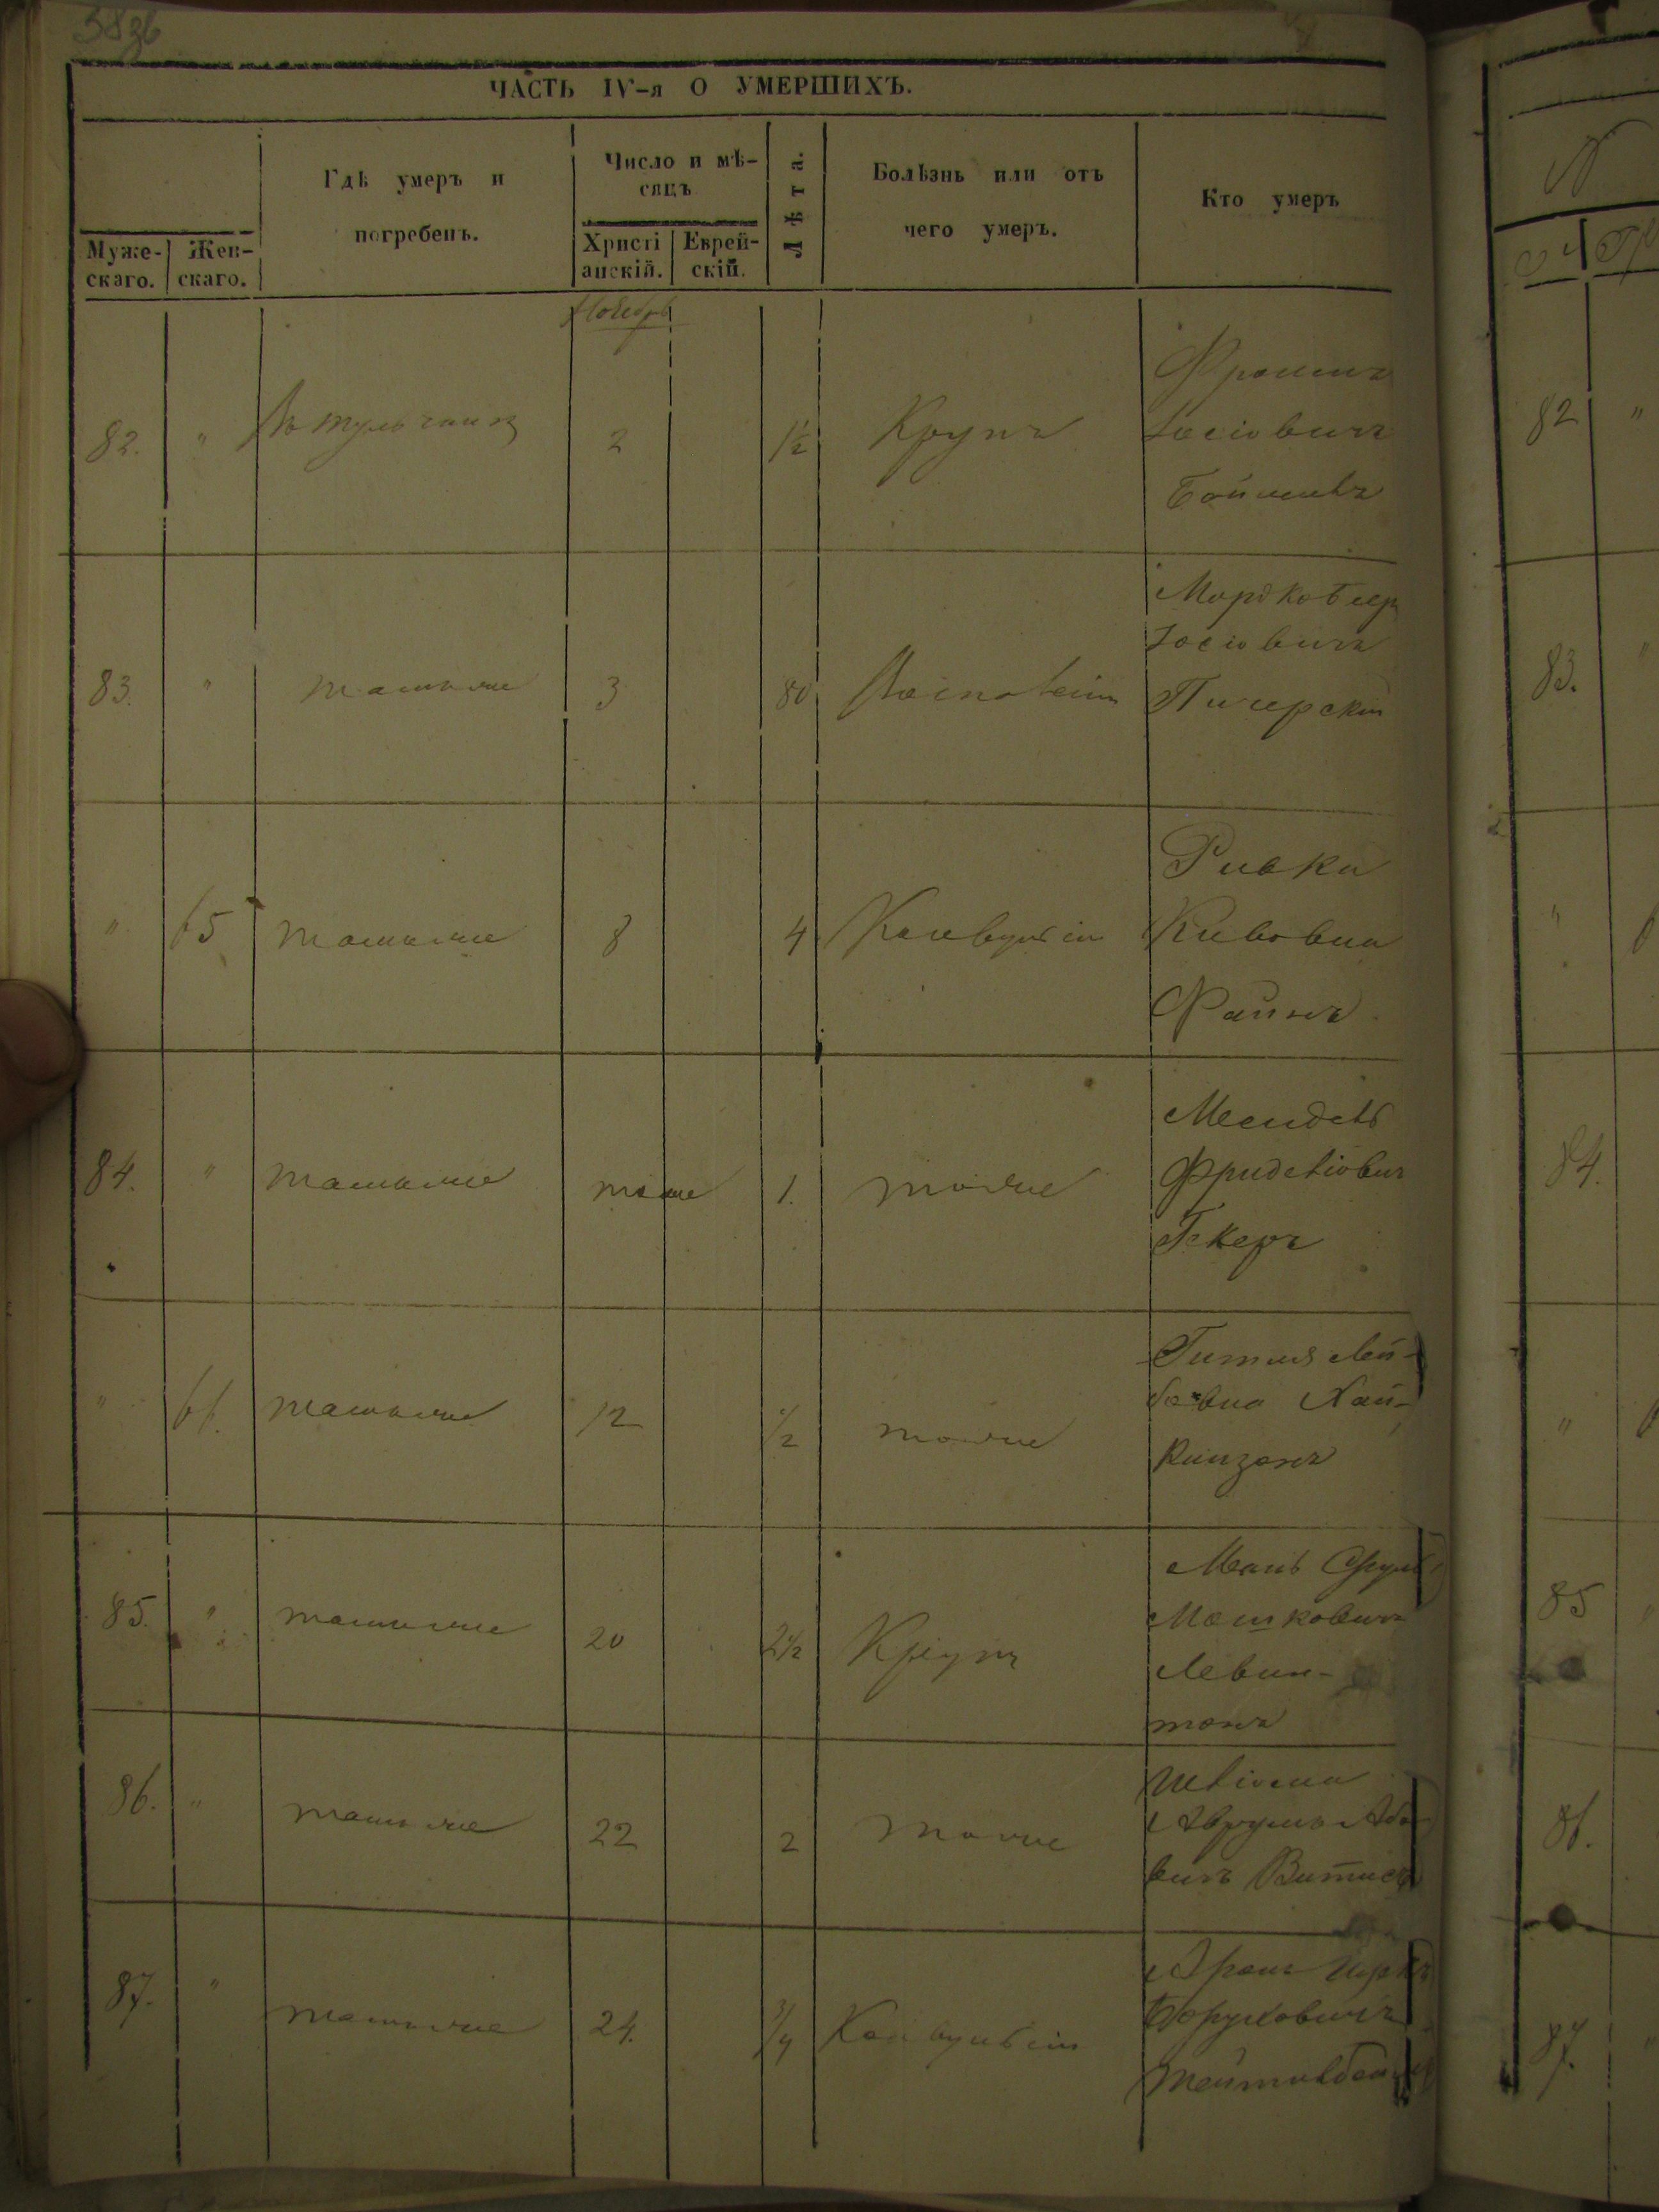 ЧАСТЬ IV-я О УМЕРШИХЪ.
Муже-
скаго.
Жен-
скаго.
Гдѣ умеръ и
погребенъ.
Число и мѣ-
сяцъ
Христі
анскій.
Еврей-
скій.
Лѣта.
Болѣзнь или отъ
чего умеръ.
Кто умеръ
Ноябрь
82. " Въ Тульчинѣ 2 1½ Крупъ
Іосіовичъ
83. " тамъ же 3 80
Іосіовичъ
Пичерскій
" 65 тамъ же 8 4 Конвульсіи
Ривка
Кивовна
Файнъ
84. " тамъ же тоже 1. тоже
Мендель
Фридель
Гекеръ
" 66. тамъ же 12 ½ тоже
Гитля Лей-
бовна Хай-
кинзонъ
85. " тамъ же 20 2½ Крупъ
Мань Сруль
Мошковичъ
Левин-
тонъ
86. " тамъ же 22 2 тоже
Шліома
Аврумъ Або
вичъ
87. " тамъ же 24. 3/4 Конвульсіи
Аронъ
Боруховичъ
82 "
83. "
"
84.
"
85
86.
87.